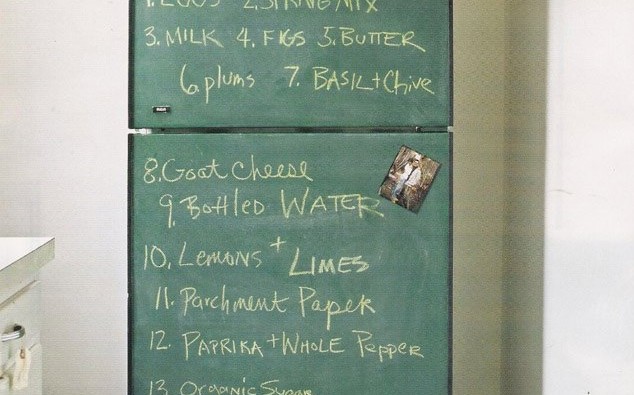 1. EGGS 2. SPRING MIX
3. MILK 4. FIGS 5. BUTTER
6 plums 7. BASIL + Chive
8. Goat Cheese
9. Bottled WATER
10. Lemons + LIMES
11. Parchment Paper
12. PAPRIKA + WHOLE Pepper
13. Organic Sugar